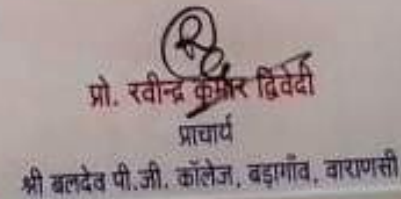 प्रो. रवीन्द्र कुमार द्विवेदी
प्राचार्य
श्री बलदेव पी.जी. कॉलेज, बड़ागाँव, वाराणसी